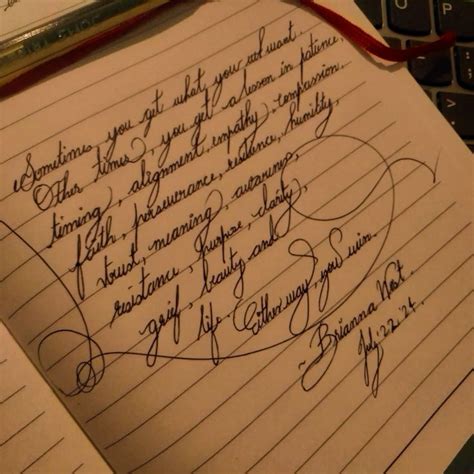 Sometimes, you get what you want.
Other times, you get a lesson in patience,
timing, alignment, empathy, compassion,
faith, perseverance, resilience, humility,
trust, meaning, awareness,
resistance, purpose, clarity,
grief, beauty and
life. Either way, you win.
~ Brianna West.
July. 22 '24